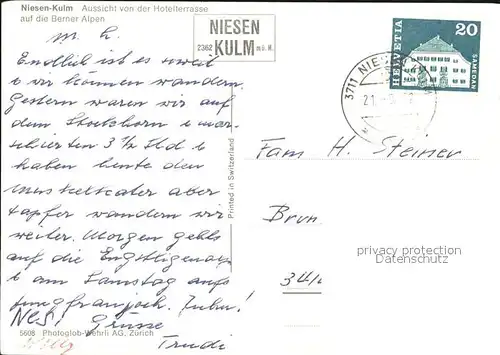 Niesen-Kulm Aussicht von der Hotelterrasse
auf die Berner Alpen
NIESEN
2362 KULM m ü. M.
HELVETIA
20
SAMEDAN
3711 NIES
21
m. h.
Endlich ist es soweit
& wir können wandern.
Gestern waren wir auf
dem Stockhorn & mar-
schierten 3 1/2 Std &
haben heute den
Muskelkater aber
tapfer wandern wir
weiter. Morgen gehts
auf die Engstligenalp
& am Samstag aufs
Jungfraujoch. Juhu!
Grüsse
Trudi
Fam H. Steiner
Brun
34
privacy protection
Datenschutz
Printed in Switzerland
5608 Photoglob-Wehrli AG, Zürich